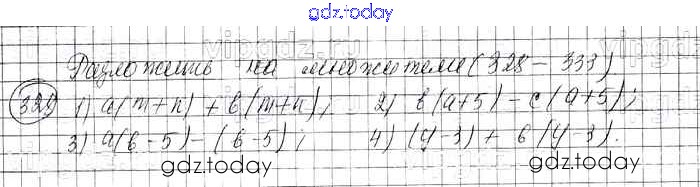 gdz.today
Разложить на множители (328 – 333)
329 1) a(m+n) + b(m+n); 2) b(a+5) – c(a+5);
3) a(b-5) – (b-5); 4) (y-3) + b(y-3).
gdz.today gdz.today